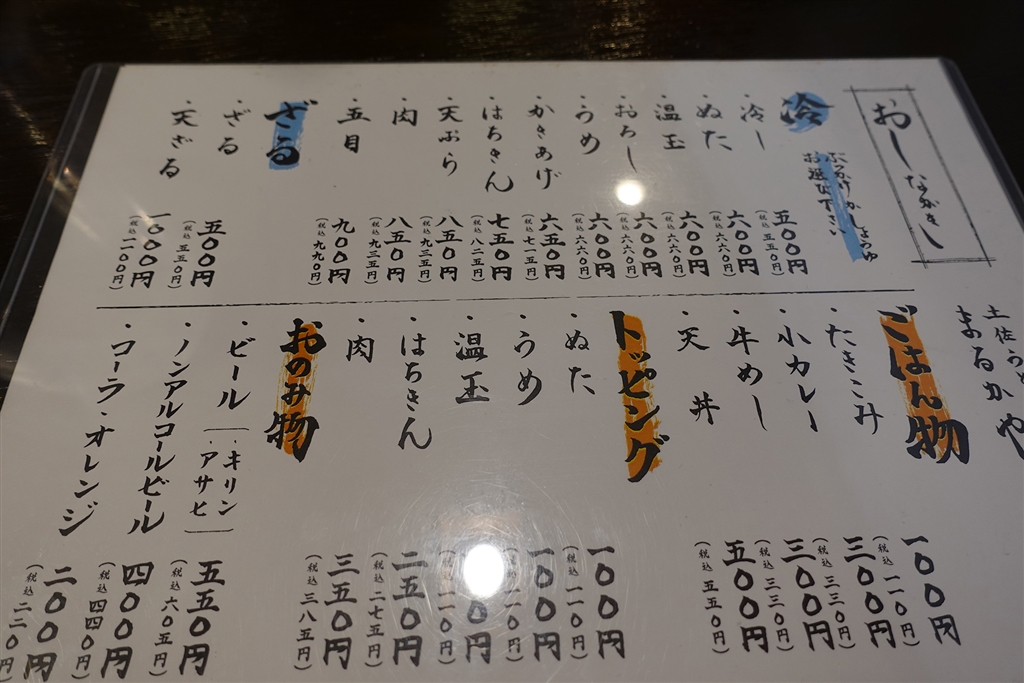 おしながき
冷
ぶっかけかしょうゆ
お選び下さい
・冷し 五〇〇円
(税込 五五〇円)
・ぬた 六〇〇円
(税込 六六〇円)
・温玉 六〇〇円
(税込 六六〇円)
・おろし 六〇〇円
(税込 六六〇円)
・うめ 六〇〇円
(税込 六六〇円)
・かきあげ 六五〇円
(税込 七一五円)
・はちきん 七五〇円
(税込 八二五円)
・天ぷら 八五〇円
(税込 九三五円)
・肉 八五〇円
(税込 九三五円)
・五目 九〇〇円
(税込 九九〇円)
ざる
・ざる 五〇〇円
(税込 五五〇円)
・天ざる 一〇〇〇円
(税込 一一〇〇円)
土佐う
まるかや
ごはん物
・たきこみ 一〇〇円
(税込 一一〇円)
・小カレー 三〇〇円
(税込 三三〇円)
・牛めし 三〇〇円
(税込 三三〇円)
・天丼 五〇〇円
(税込 五五〇円)
トッピング
・ぬた 一〇〇円
(税込 一一〇円)
・うめ 一〇〇円
(税込 一一〇円)
・温玉 〇円
(税込 一一〇円)
・はちきん 二五〇円
(税込 二七五円)
・肉 三五〇円
(税込 三八五円)
おのみ物
・ビール (・キリン ・アサヒ) 五五〇円
(税込 六〇五円)
・ノンアルコールビール 四〇〇円
(税込 四四〇円)
・コーラ・オレンジ 二〇〇円
(税込 二二〇円)